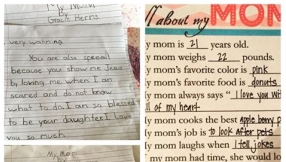 My Mom
by
Gracie Harris
very warming.
You are also special
because you show me Jesus
by loving me when I am
scared and do not know
what to do I am so blessed
to be your daughter! Love
you so much
My Mom
All about my MOM
y mom is 21 years old.
y mom weighs 22 pounds.
y mom's favorite color is pink
y mom's favorite food is donuts
y mom always says "I love you wit
ll of my heart
y mom cooks the best apple berry p
y mom's job is to look after pets
y mom laughs when I tell jokes
my mom had time, she would lo